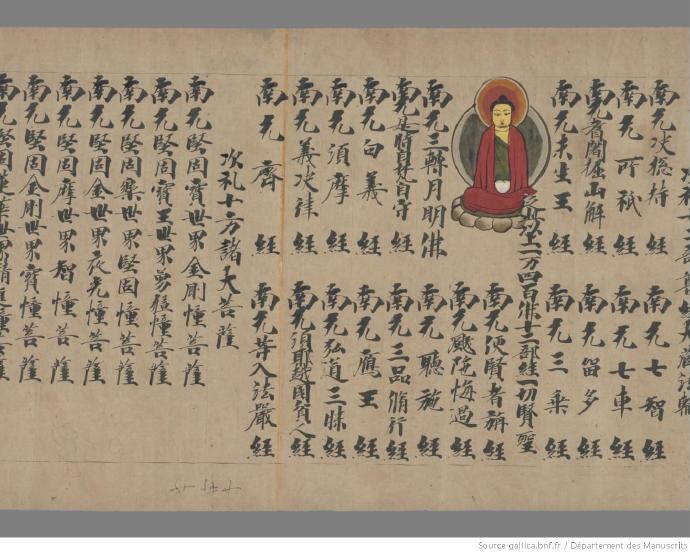 次礼十二部尊經大藏法輪
南无決総持經 南无七智經
南无所祇經 南无七車經
南无耆闍崛山解經 南无留多經
南无未生王經 南无三乘經
以上二万四百佛十二部經一切賢聖
南无便賢者旃經
南无颰陀悔過經
南无三轉月明佛 南无聽施經
南无是時自梵自守經 南无三品脩行經
南无自義經 南无應王經
南无須摩經 南无弘道三昧經
南无義决律經 南无須耶越國貧人經
南无齊經 南无等入法嚴經
次礼十方諸大菩薩
南无堅固寶世界金剛幢菩薩
南无堅固寶王世界勇猛幢菩薩
南无堅固樂世界堅固幢菩薩
南无堅固金世界夜光幢菩薩
南无堅固摩世界智幢菩薩
南无堅固金剛世界寶幢菩薩
南无堅固蓮華世界精進幢菩薩
Source gallica.bnf.fr / Département des Manuscrits